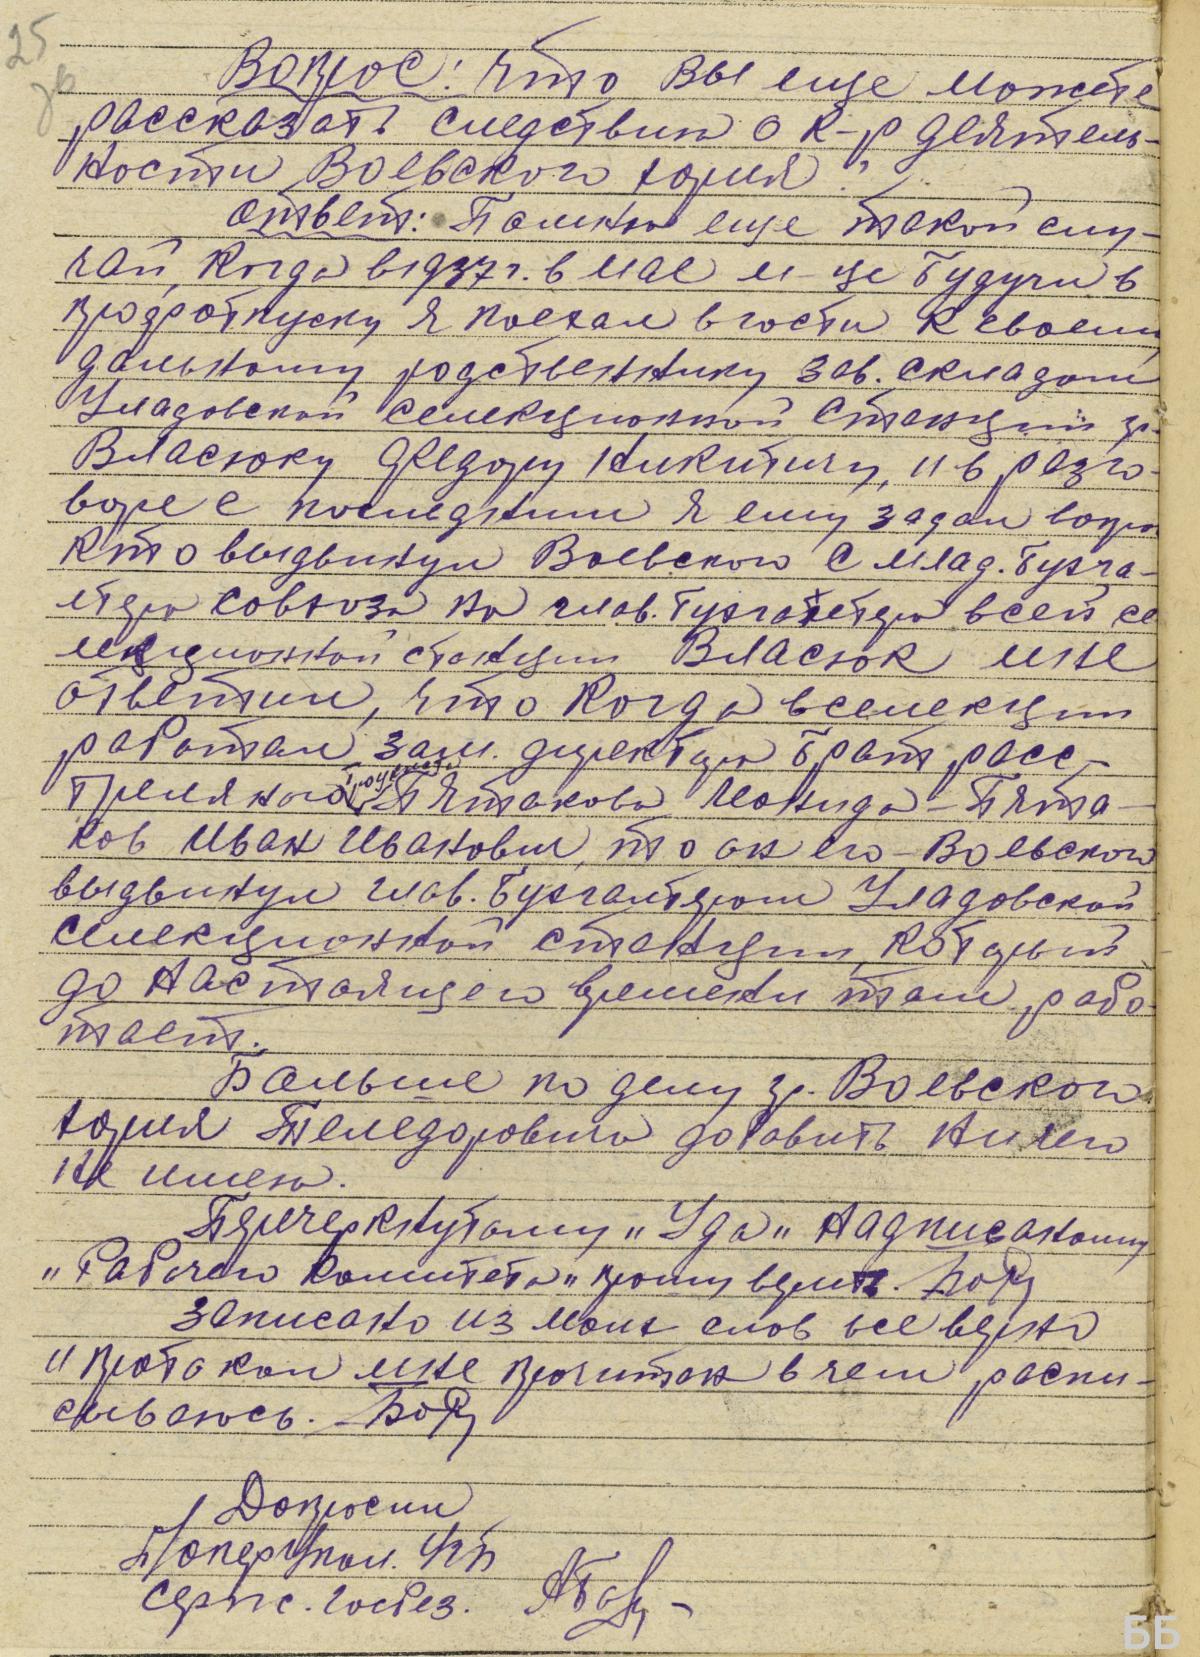 25
Вопрос: Что Вы еще можете
рассказать следствию о к-р деятель-
ности Воевского Юрия?
Ответ: Помню еще такой слу-
чай, когда в 1937 г. в мае м-це будучи в
проф отпуску я поехал в гости к своему
дальному родственнику зав. складом
Уладовской селекционной станции гр.
Власюку Федору Никитичу, и в разго-
воре с последним я ему задал вопрос
кто выдвинул Воевского с млад. бухга-
лтера совхоза на глав. бухгалтера всей се
лекционной станции Власюк мне
ответил, что когда в селекции
работал зам. директора брат расс-
треляного троцкиста Пятакова Леонида - Пята-
ков Иван Иванович, то он его - Воевского
выдвинул глав. бухгалтером Уладовской
селекционной станции, который
до настоящего времени там рабо-
тает.
Больше по делу гр. Воевского
Юрия Телефоровича добавить ничего
не имею.
Перечеркнутому "Уда" надписаному
"Рабочего комитета" прошу верить.
Записано из моих слов все верно
и протокол мне прочитан в чем распи-
сываюсь.
Допросил
П/оперуполн. УГБ
серж. госбез.
ББ